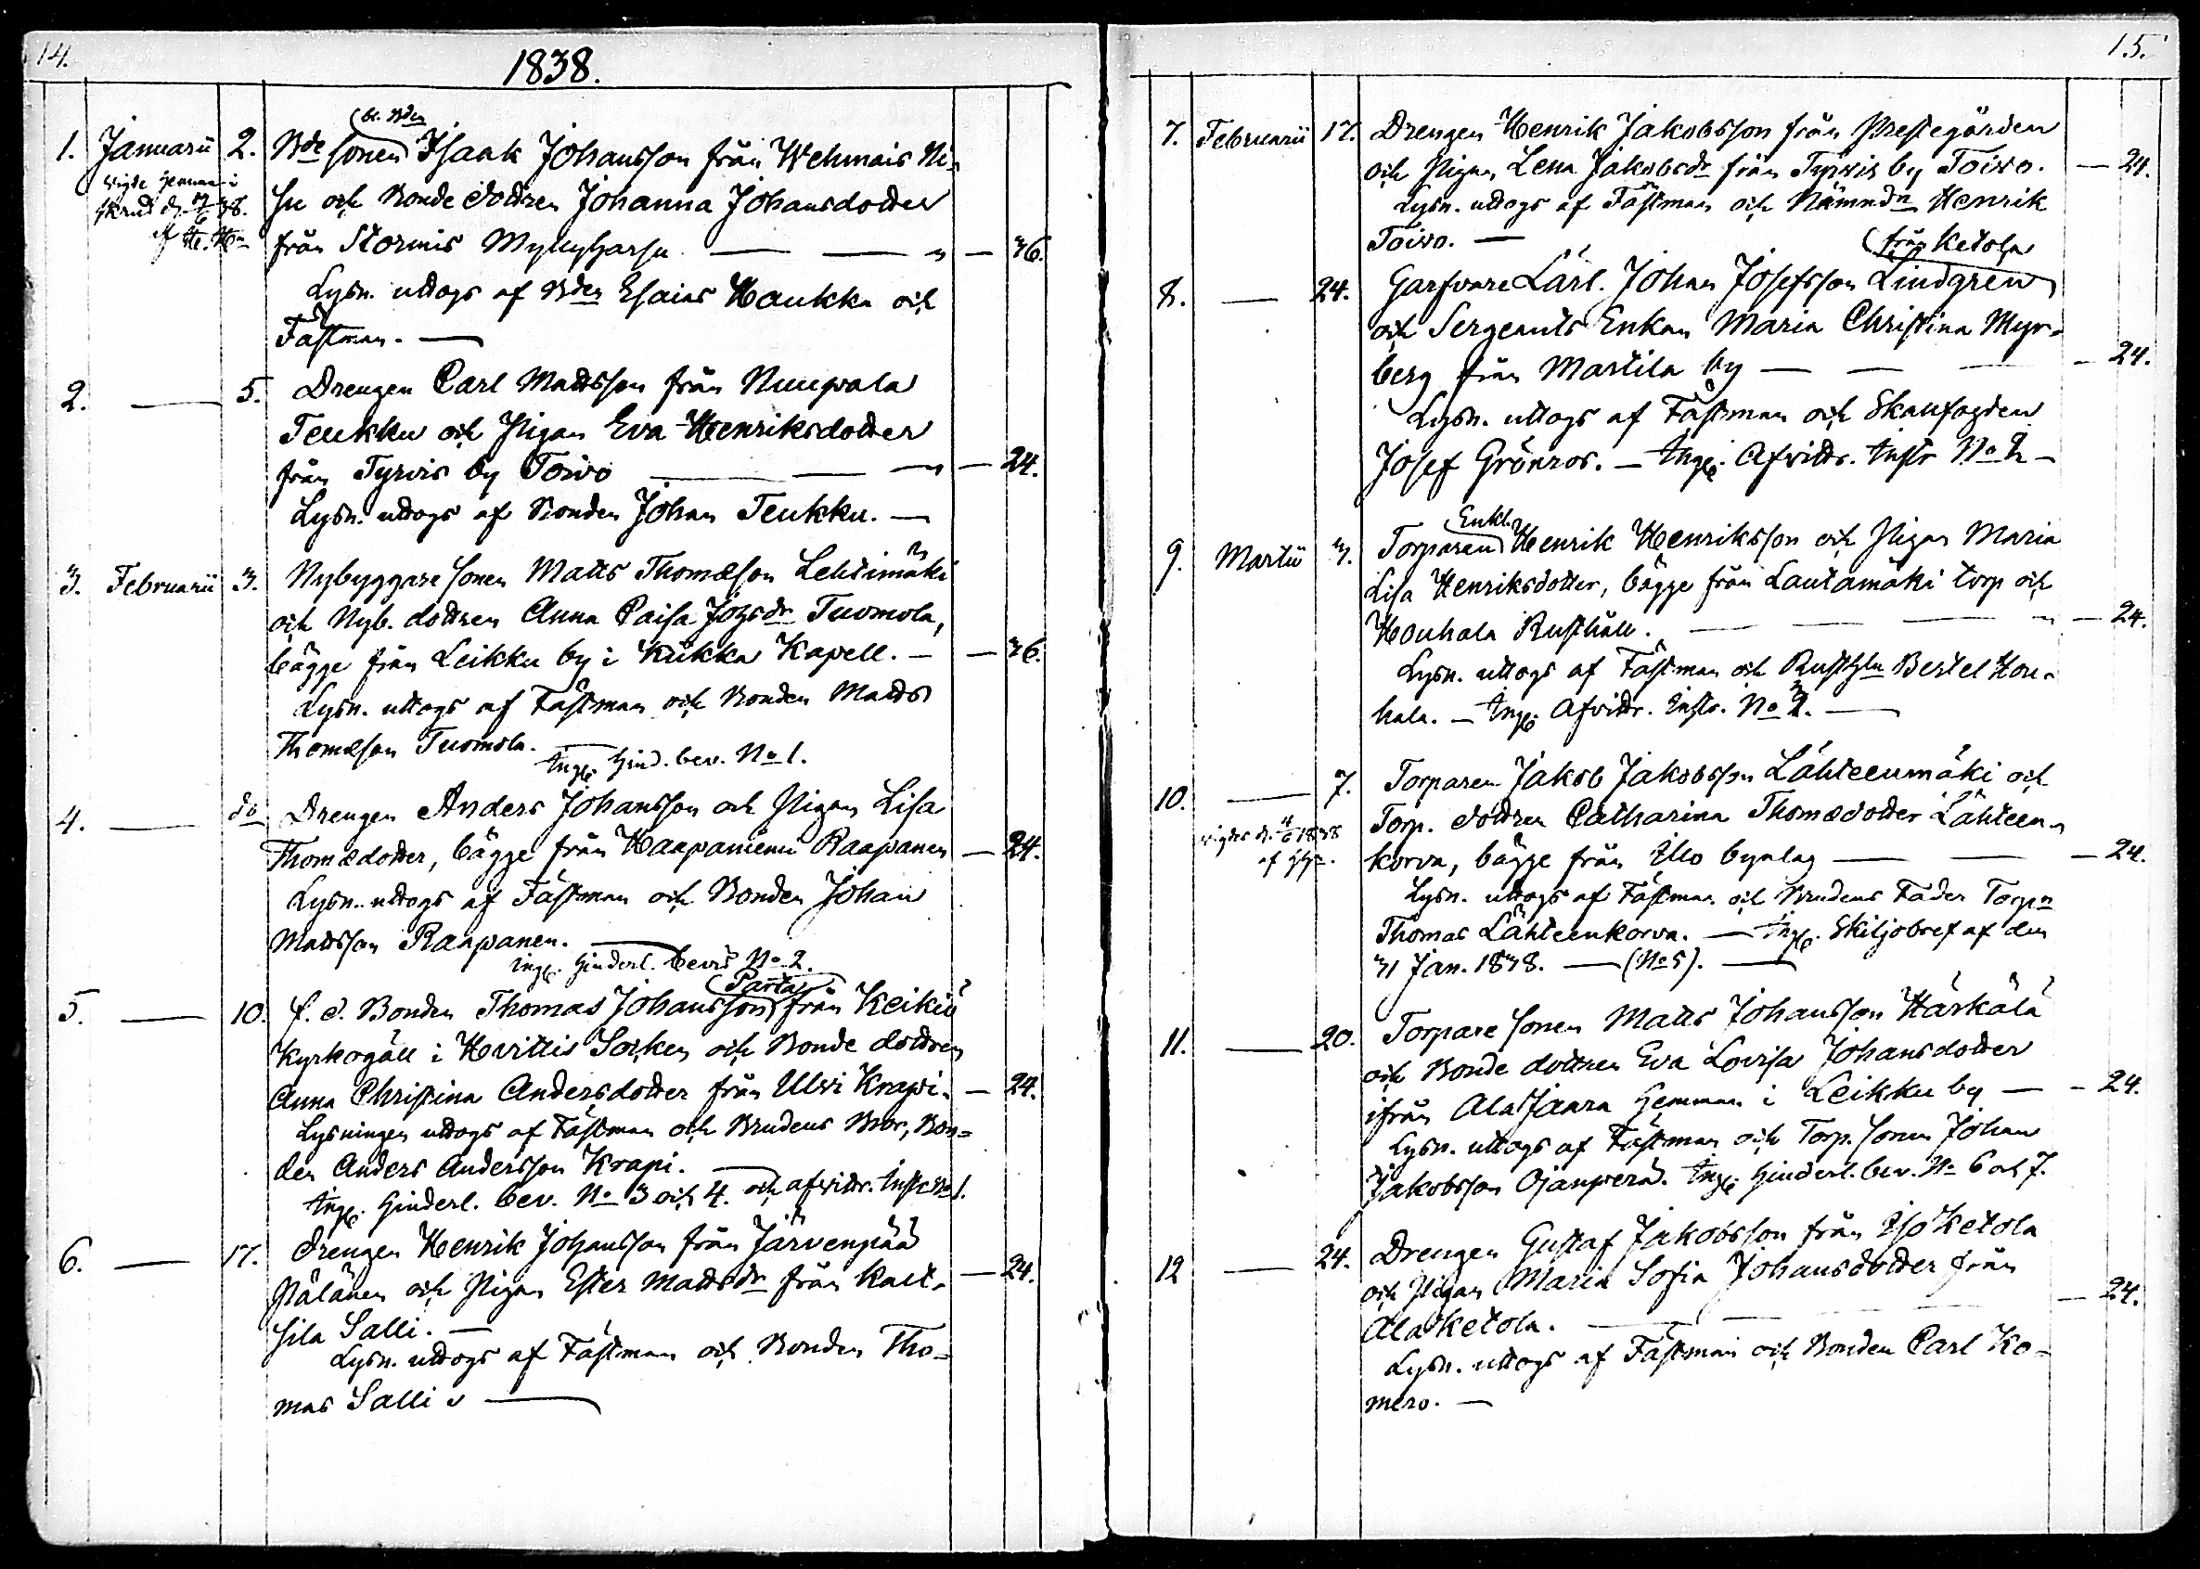 14.
1838.
1. Januarii 2. Bde sonen (bl. Bden) Isaak Johansson från Wehmais Ni-
vigde hemma i
su och Bonde dottren Johanna Johansdotter
från Stormis Myllyharju — — — 36.
Lysn. uttogs af Bden Esaias Haukka och
Fästman. —
2. — 5. Drengen Carl Mattsson från Nuupala
Teukku och Pigan Eva Henriksdotter
från Tyrvis by Toivo — — — 24.
Lysn. uttogs af Bonden Johan Teukku. —
3. Februarii 3. Nybyggare sonen Matts Thomæson Lehtimäki
och Nyb. dottren Anna Caisa Johsdr Tuomola,
bägge från Leikku by i Kiikka Kapell. — — 36.
Lysn. uttogs af Fästman och Bonden Matts
Thomæson Tuomola. —
Ingl. hind. bev. No 1.
4. — do Drengen Anders Johansson och Pigan Lisa
Thomædotter, bägge från Haapaniemi Raapanen — 24.
Lysn. uttogs af Fästman och Bonden Johan
Mattsson Raapanen. —
ingl. hinderl. bevis No 2.
5. — 10. f. d. Bonden Thomas Johansson (Partas) från Keikiö
Kyrkogäll i Hvittis Socken och Bonde dottren
Anna Christina Andersdotter från Ulvi Krapi. — 24.
Lysningen uttogs af Fästman och Brudens Bror, Bon-
den Anders Andersson Krapi. —
Ingl. hinderl. bev. No 3 och 4. och afvittr. Instr No 1.
6. — 17. Drengen Henrik Johansson från Järvenpää
Pälänen och Pigan Ester Mattsdr från Kalt- — 24.
sila Salli. —
Lysn. uttogs af Fästman och Bonden Tho-
mas Salli —
15.
7. Februarii 17. Drengen Henrik Jakobsson från Prestegården
och Pigan Lena Jakobsdr från Tyrvis by Toivo. — 24.
Lysn. uttogs af Fästman och Nämndn Henrik
Toivo. —
8. — 24. Garfvare Lärl. Johan Josefsson Lindgren (från Ketola
och Sergeants Enkan Maria Christina Myr-
berg från Martila by — — — 24.
Lysn. uttogs af Fästman och Skallfogden
Josef Grönroos. — Ingl. Afvittr. Instr No 2 —
9. Martii 3. Torparen (Enkl. Henrik Henriksson och Pigan Maria
Lisa Henriksdotter, bägge från Lautamäki torp och
Houhala Rusthåll. — — — 24.
Lysn. uttogs af Fästman och Rusthln Bertel Hou-
hala. — Ingl. Afvittr. Instr. No 3. —
10. — 7. Torparen Jakob Jakobsson Lähteenmäki och
vigdes d. 4/6 1838
Torp. dottren Catharina Thomædotter Lähteen-
korva, bägge från Illo bynlag — — — 24.
Lysn. uttogs af Fästman och Brudens Fader Torpn
Thomas Lähteenkorva. — Ingl. Skiljobref af den
31 Jan. 1838. — (No 5). —
11. — 20. Torpare sonen Matts Johansson Härkälä
och Bonde dottren Eva Lovisa Johansdotter
ifrån AlaJaara hemman i Leikku by — — 24.
Lysn. uttogs af Fästman och Torp. sonen Johan
Jakobsson Ojanperä. Ingl. hinderl. bev. No 6 och 7.
12 — 24. Drengen Gustaf Jakobsson från IsoKetola
och Pigan Maria Sofia Johansdotter från
AlaKetola. — — — 24.
Lysn. uttogs af Fästman och Bonden Carl Ko-
mero. —